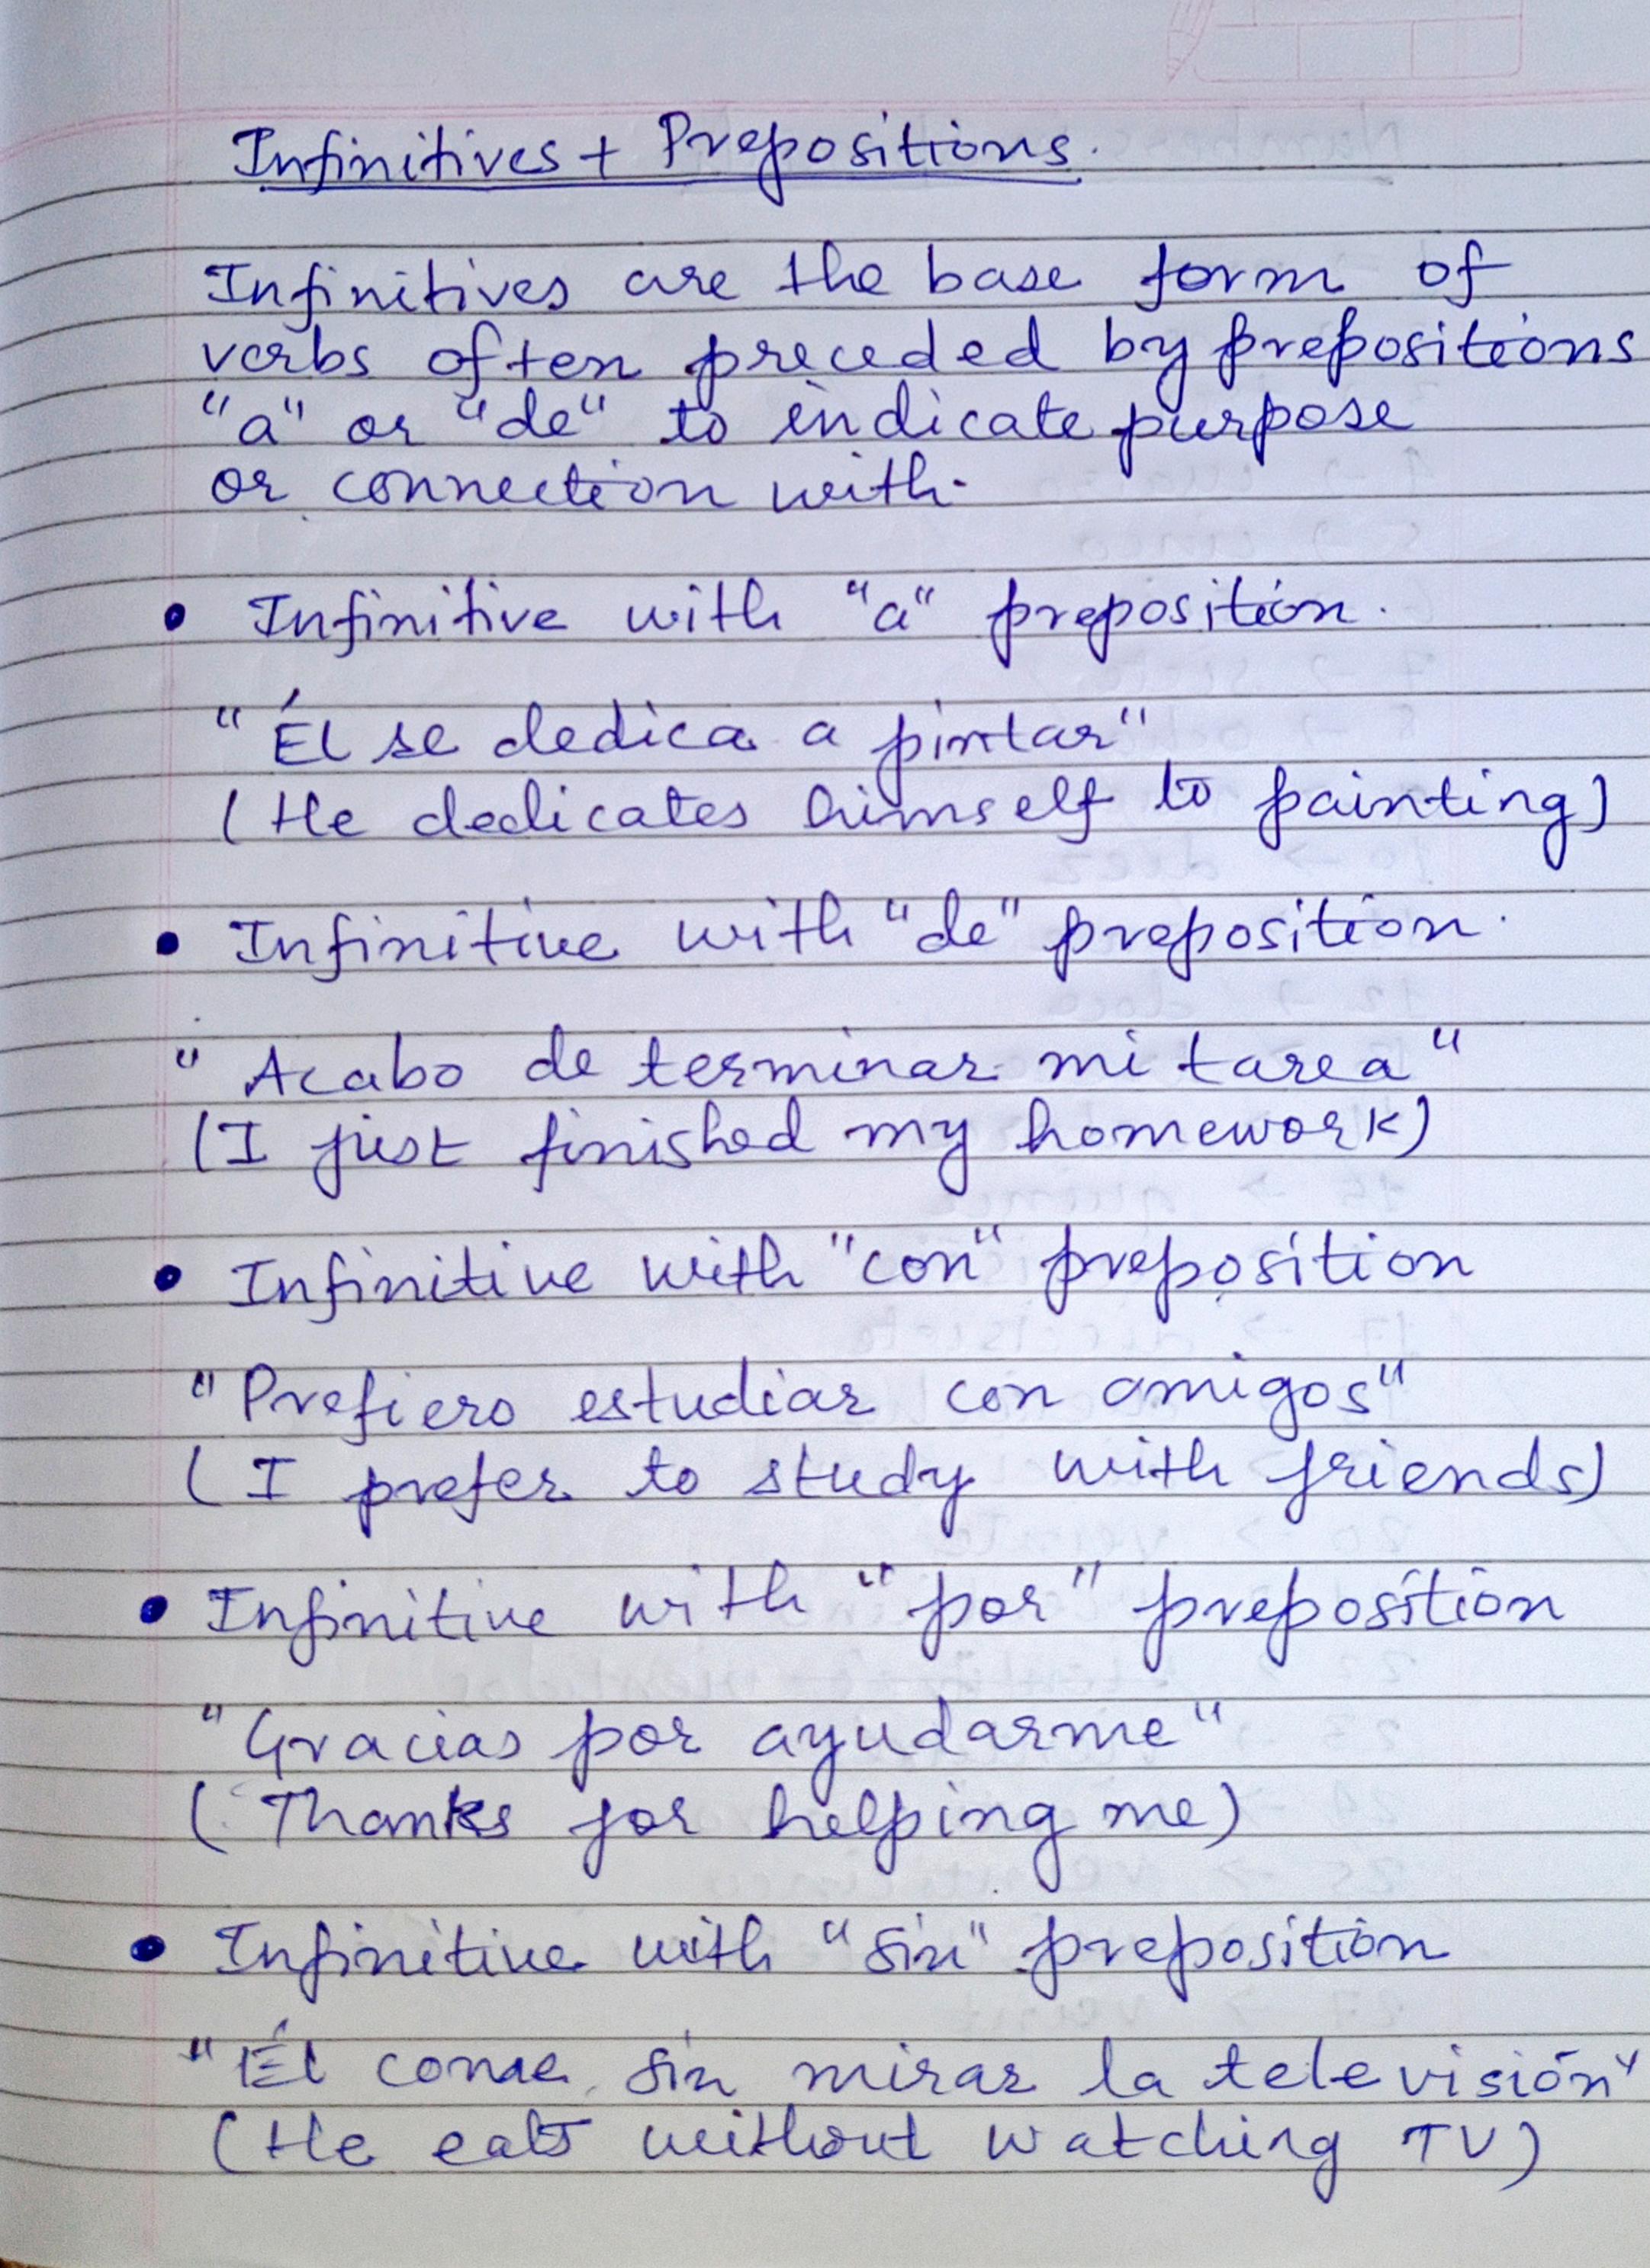 Infinitives + Prepositions.
Infinitives are the base form of
verbs often preceded by prepositions
"a" or "de" to indicate purpose
or connection with.
• Infinitive with "a" preposition.
"Él se dedica a pintar"
(He dedicates himself to painting)
• Infinitive with "de" preposition.
"Acabo de terminar mi tarea"
(I just finished my homework)
• Infinitive with "con" preposition
"Prefiero estudiar con amigos"
(I prefer to study with friends)
• Infinitive with "por" preposition
"Gracias por ayudarme"
(Thanks for helping me)
• Infinitive with "sin" preposition
"Él come sin mirar la televisión"
(He eats without watching TV)